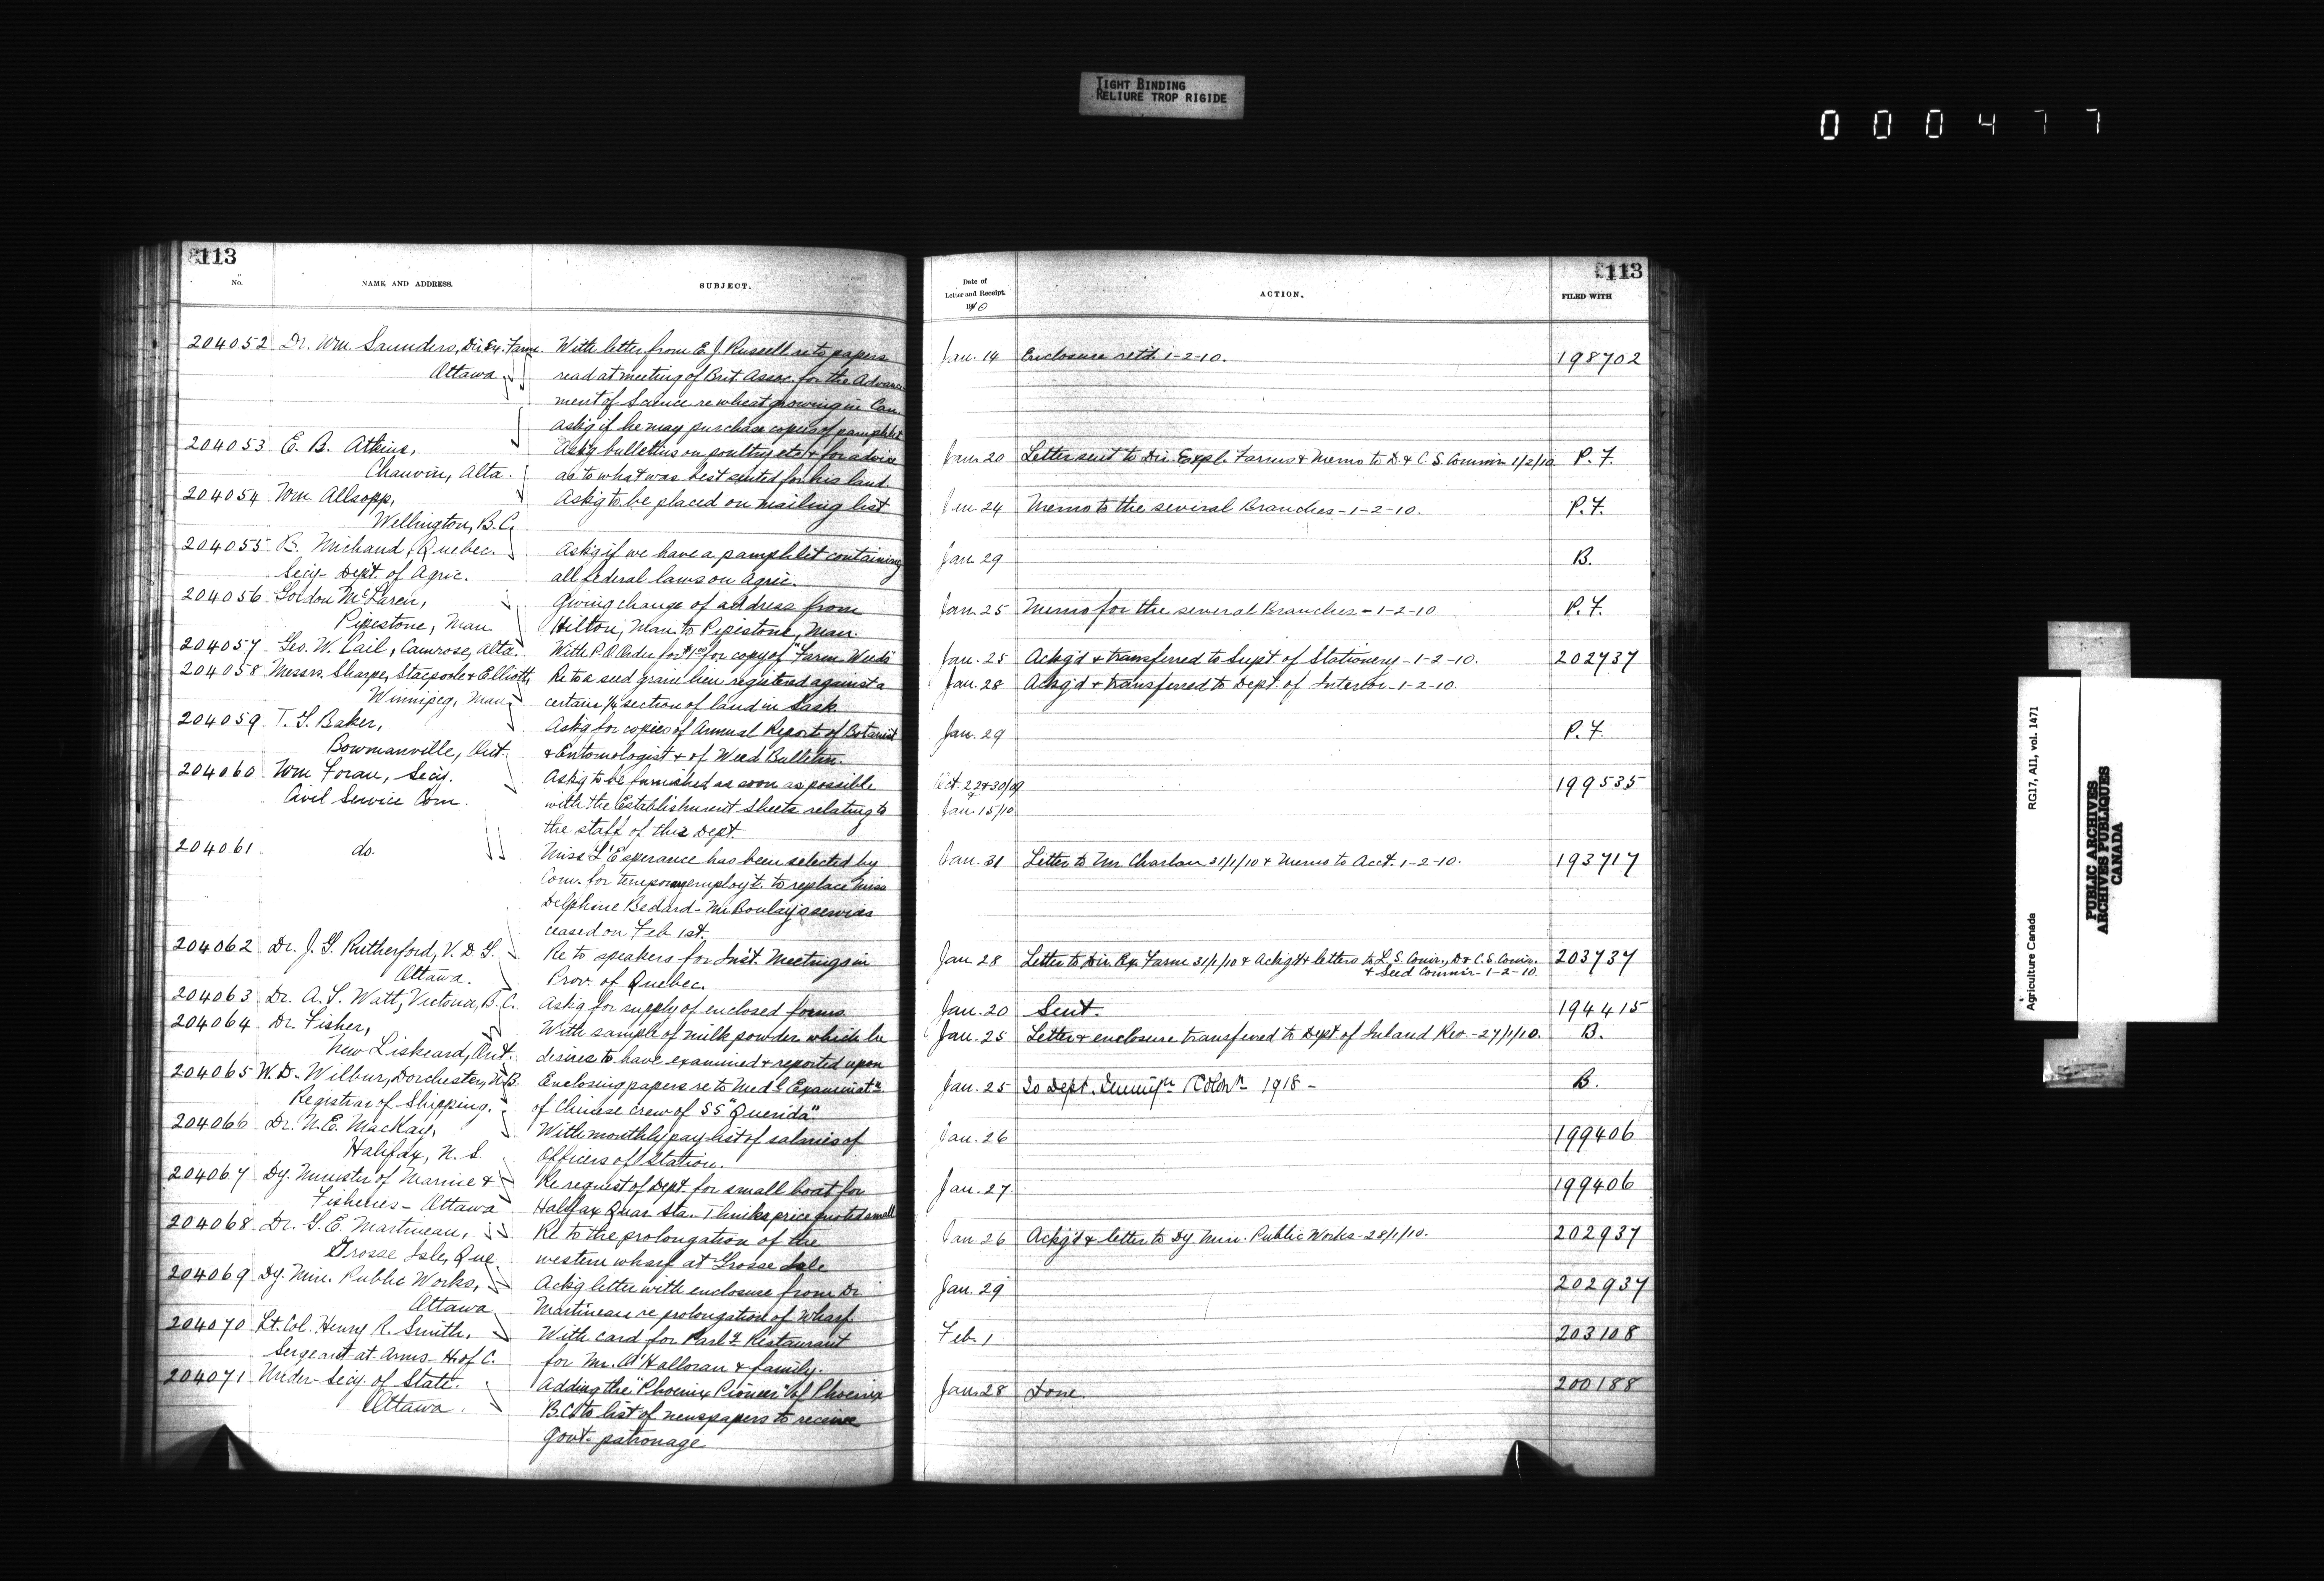 TIGHT BINDING
RELIURE TROP RIGIDE
000477
113
No.
NAME AND ADDRESS.
SUBJECT.
204052 Dr. Wm. Saunders, Dir. Ex. Farm. With letter from E. J. Russell re to papers
Ottawa read at meeting of Brit. Assoc. for the Advance
ment of Science re wheat growing in Can.
Ask'g if he may purchase copies of pamphlet
204053 E. B. Atkins, Ask'g bulletins on poultry etc & for advice
Chauvin, Alta. as to what was best suited for his land
204054 Wm Allsopp, Ask'g to be placed on mailing list
Wellington, B.C.
204055 B. Michaud, Quebec. Ask'g if we have a pamphlet containing
Secy- Dept. of Agric. all federal laws on agric.
204056 Gordon McLaren, Giving change of address from
Pipestone, Man Hilton, Man. to Pipestone, Man.
204057 Geo. W. Cail, Camrose, Alta. With P.O. Order for $1.00 for copy of "Farm Weeds
204058 Messrs. Sharpe, Stacpoole & Elliott, Re to a seed grain lien registered against a
Winnipeg, Man. certain 1/4 section of land in Sask.
204059 T. G. Baker, Ask'g for copies of Annual Report of Botanist
Bowmanville, Ont. & Entomologist & of Weed Bulletin.
204060 Wm Foran, Secy. Ask'g to be furnished as soon as possible
Civil Service Com. with the Establishment Sheets relating to
the staff of this Dept.
204061 do. Miss L'Esperance has been selected by
Com. for temporary employ't. to replace Miss
Delphine Bedard - Mr Boulay's services
ceased on Feb 1st.
204062 Dr. J. G. Rutherford, V. D. G. Re to speakers for Inst. Meetings in
Ottawa. Prov. of Quebec.
204063 Dr. A. T. Watt, Victoria, B.C. Ask'g for supply of enclosed forms
204064 Dr. Fisher, With sample of milk powder which he
New Liskeard, Ont. desires to have examined & reported upon
204065 W. D. Wilbur, Dorchester, N.B. Enclosing papers re to Medl Examinatn
Registrar of Shipping. of Chinese crew of SS "Querida".
204066 Dr. N. E. MacKay, With monthly pay-list of salaries of
Halifax, N. S. Officers of Station.
204067 Dy. Minister of Marine & Re request of Dept. for small boat for
Fisheries - Ottawa Halifax Quar. Sta. Thinks price quoted small
204068 Dr. G. E. Martineau, Re to the prolongation of the
Grosse Isle, Que. western wharf at Grosse Isle
204069 Dy. Min. Public Works, Ack'g letter with enclosure from Dr
Ottawa Martineau re prolongation of Wharf
204070 Lt. Col. Henry R. Smith, With card for Parly Restaurant
Sergeant-at-Arms - H. of C. for Mr. O'Halloran & family.
204071 Under-Secy. of State. Adding the "Phoenix Pioneer" of Phoenix
Ottawa. B.C. to list of newspapers to receive
Govt. patronage
113
Date of
Letter and Receipt.
1910
ACTION.
FILED WITH
Jan. 14 Enclosure ret'd. 1-2-10. 198702
Jan. 20 Letter sent to Dir. Expl. Farms & Memo to D. & C. S. Commr 1/2/10. P. F.
Jan. 24 Memo to the several Branches - 1-2-10. P. F.
Jan. 29 B.
Jan. 25 Memo for the several Branches - 1-2-10 P. F.
Jan. 25 Ackg'd & transferred to Supt. of Stationery - 1-2-10. 202737
Jan. 28 Ackg'd & transferred to Dept. of Interior - 1-2-10.
Jan. 29 P. F.
Oct. 22 & 30/09 199535
Jan. 15/10
Jan. 31 Letter to Mr. Charlan 31/1/10 & Memo to Acct. 1-2-10. 193717
Jan. 28 Letter to Dir. Ex. Farm 31/1/10 & Ackg'd & letters to L. S. Comr., D & C. S. Comr. 203737
& Seed Commr - 1-2-10
Jan. 20 Sent. 194415
Jan. 25 Letter & enclosure transferred to Dept of Inland Rev. - 27/1/10. B.
Jan. 25 To Dept. Immign Colon 1918 - B.
Jan. 26 199406
Jan. 27 199406
Jan. 26 Ackg'd & letter to Dy. Min. Public Works - 28/1/10. 202937
Jan. 29 202937
Feb. 1 203108
Jan. 28 Done. 200188
Agriculture Canada RG17, AII, vol. 1471
PUBLIC ARCHIVES
ARCHIVES PUBLIQUES
CANADA